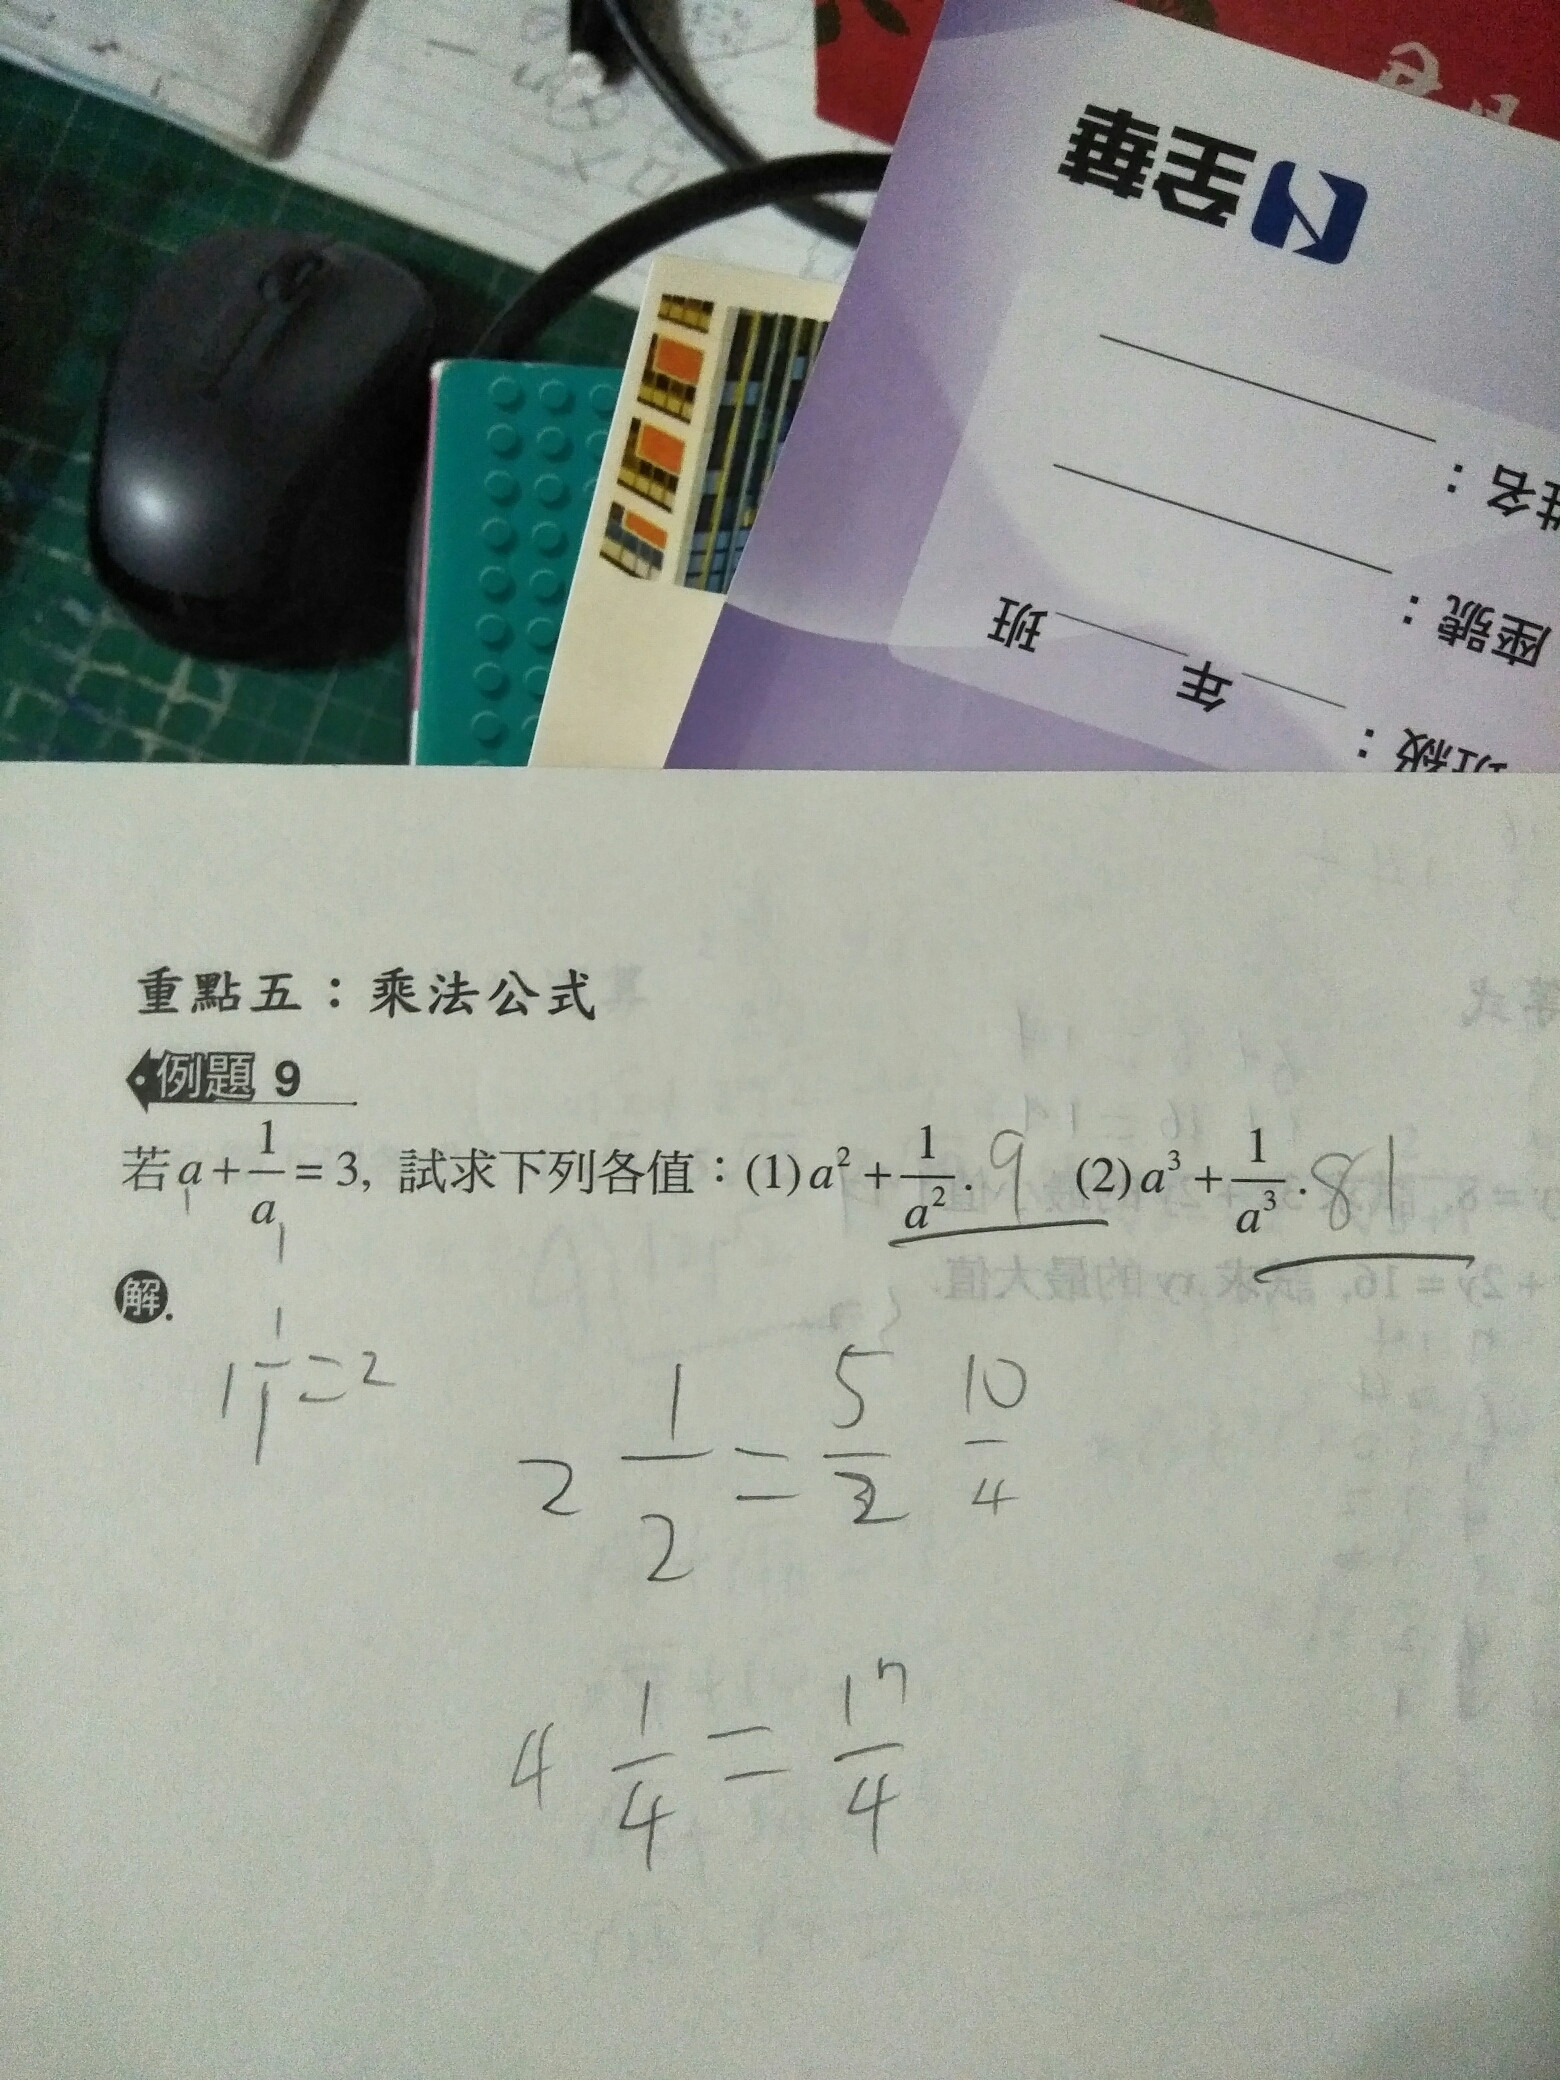 全華
姓名：
座號：
班級： 年 班
重點五：乘法公式
例題 9
若 a + 1/a = 3, 試求下列各值：(1) a² + 1/a². 9 (2) a³ + 1/a³. 81
解.
1 1/1 = 2
2 1/2 = 5/2 10/4
4 1/4 = 17/4